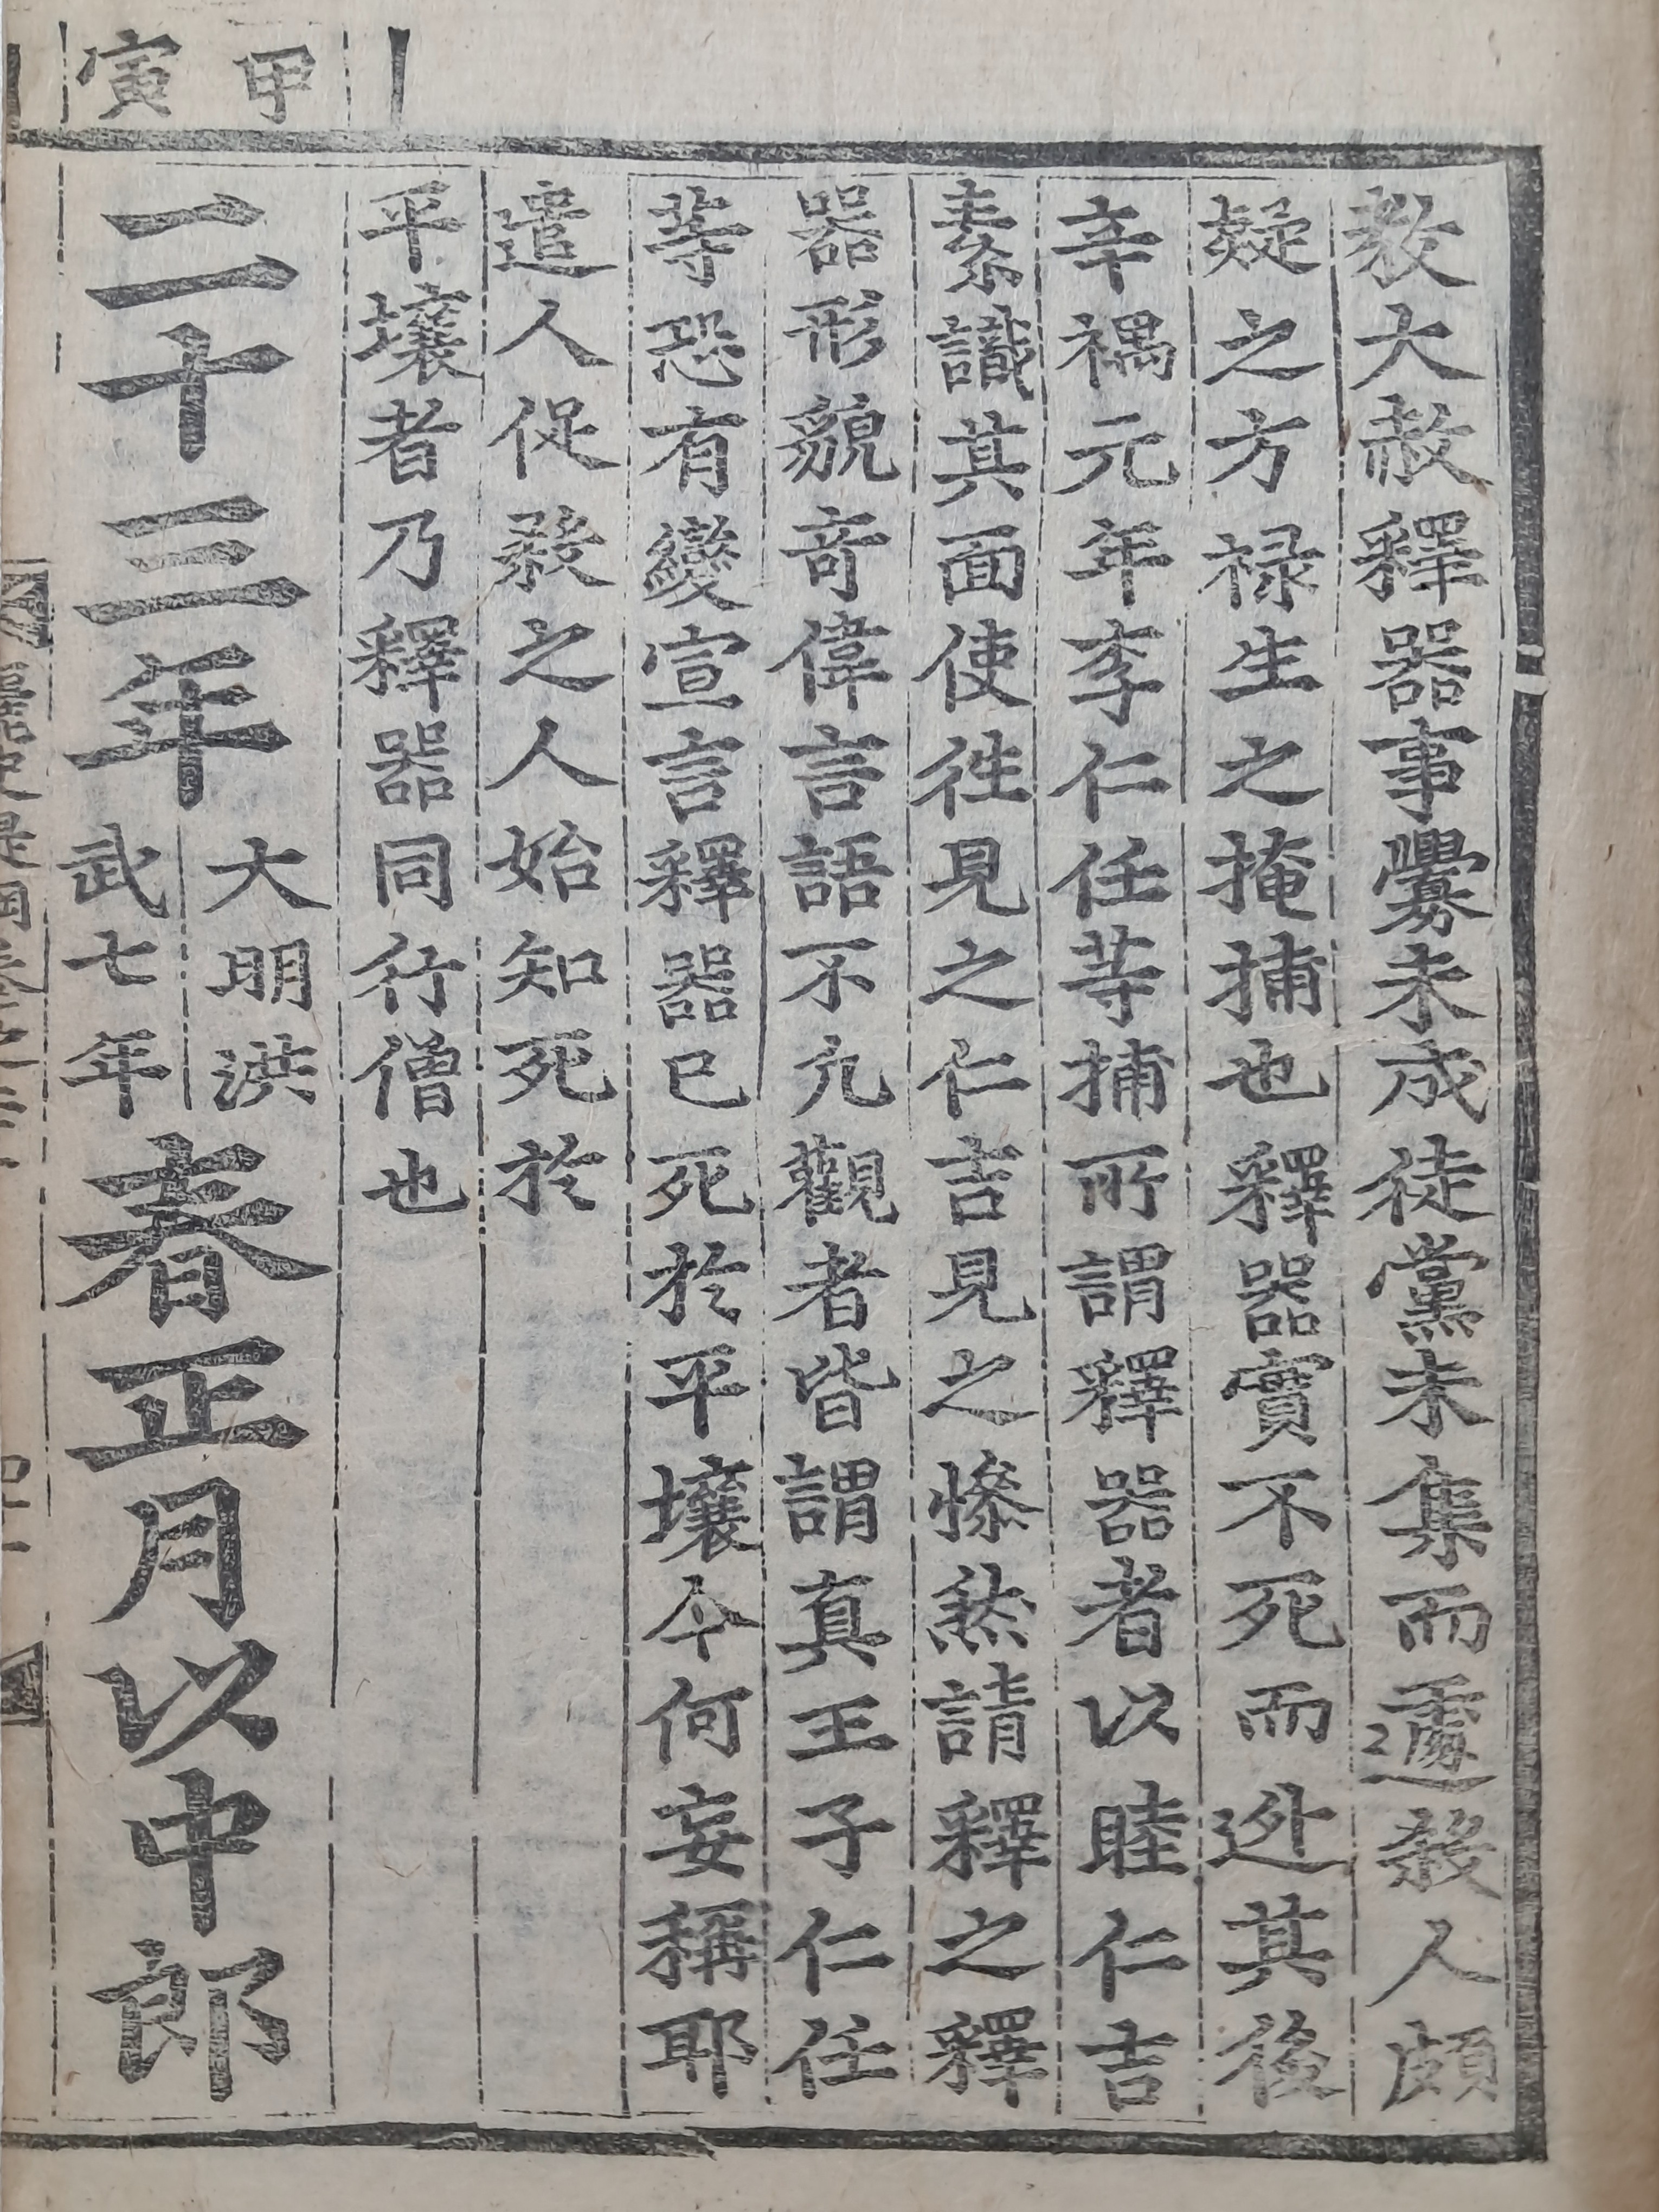 敎大赦釋器事釁未成徒黨未集而遽殺人頗
疑之方祿生之掩捕也釋器實不死而逃其後
辛禑元年李仁任等捕所謂釋器者以睦仁吉
素識其面使往見之仁吉見之慘然請釋之釋
器形貌奇偉言語不凡觀者皆謂眞王子仁任
等恐有變宣言釋器已死於平壤今何妄稱耶
遣人促殺之人始知死於
平壤者乃釋器同行僧也
甲寅
二十三年
大明洪
武七年
春正月以中郞